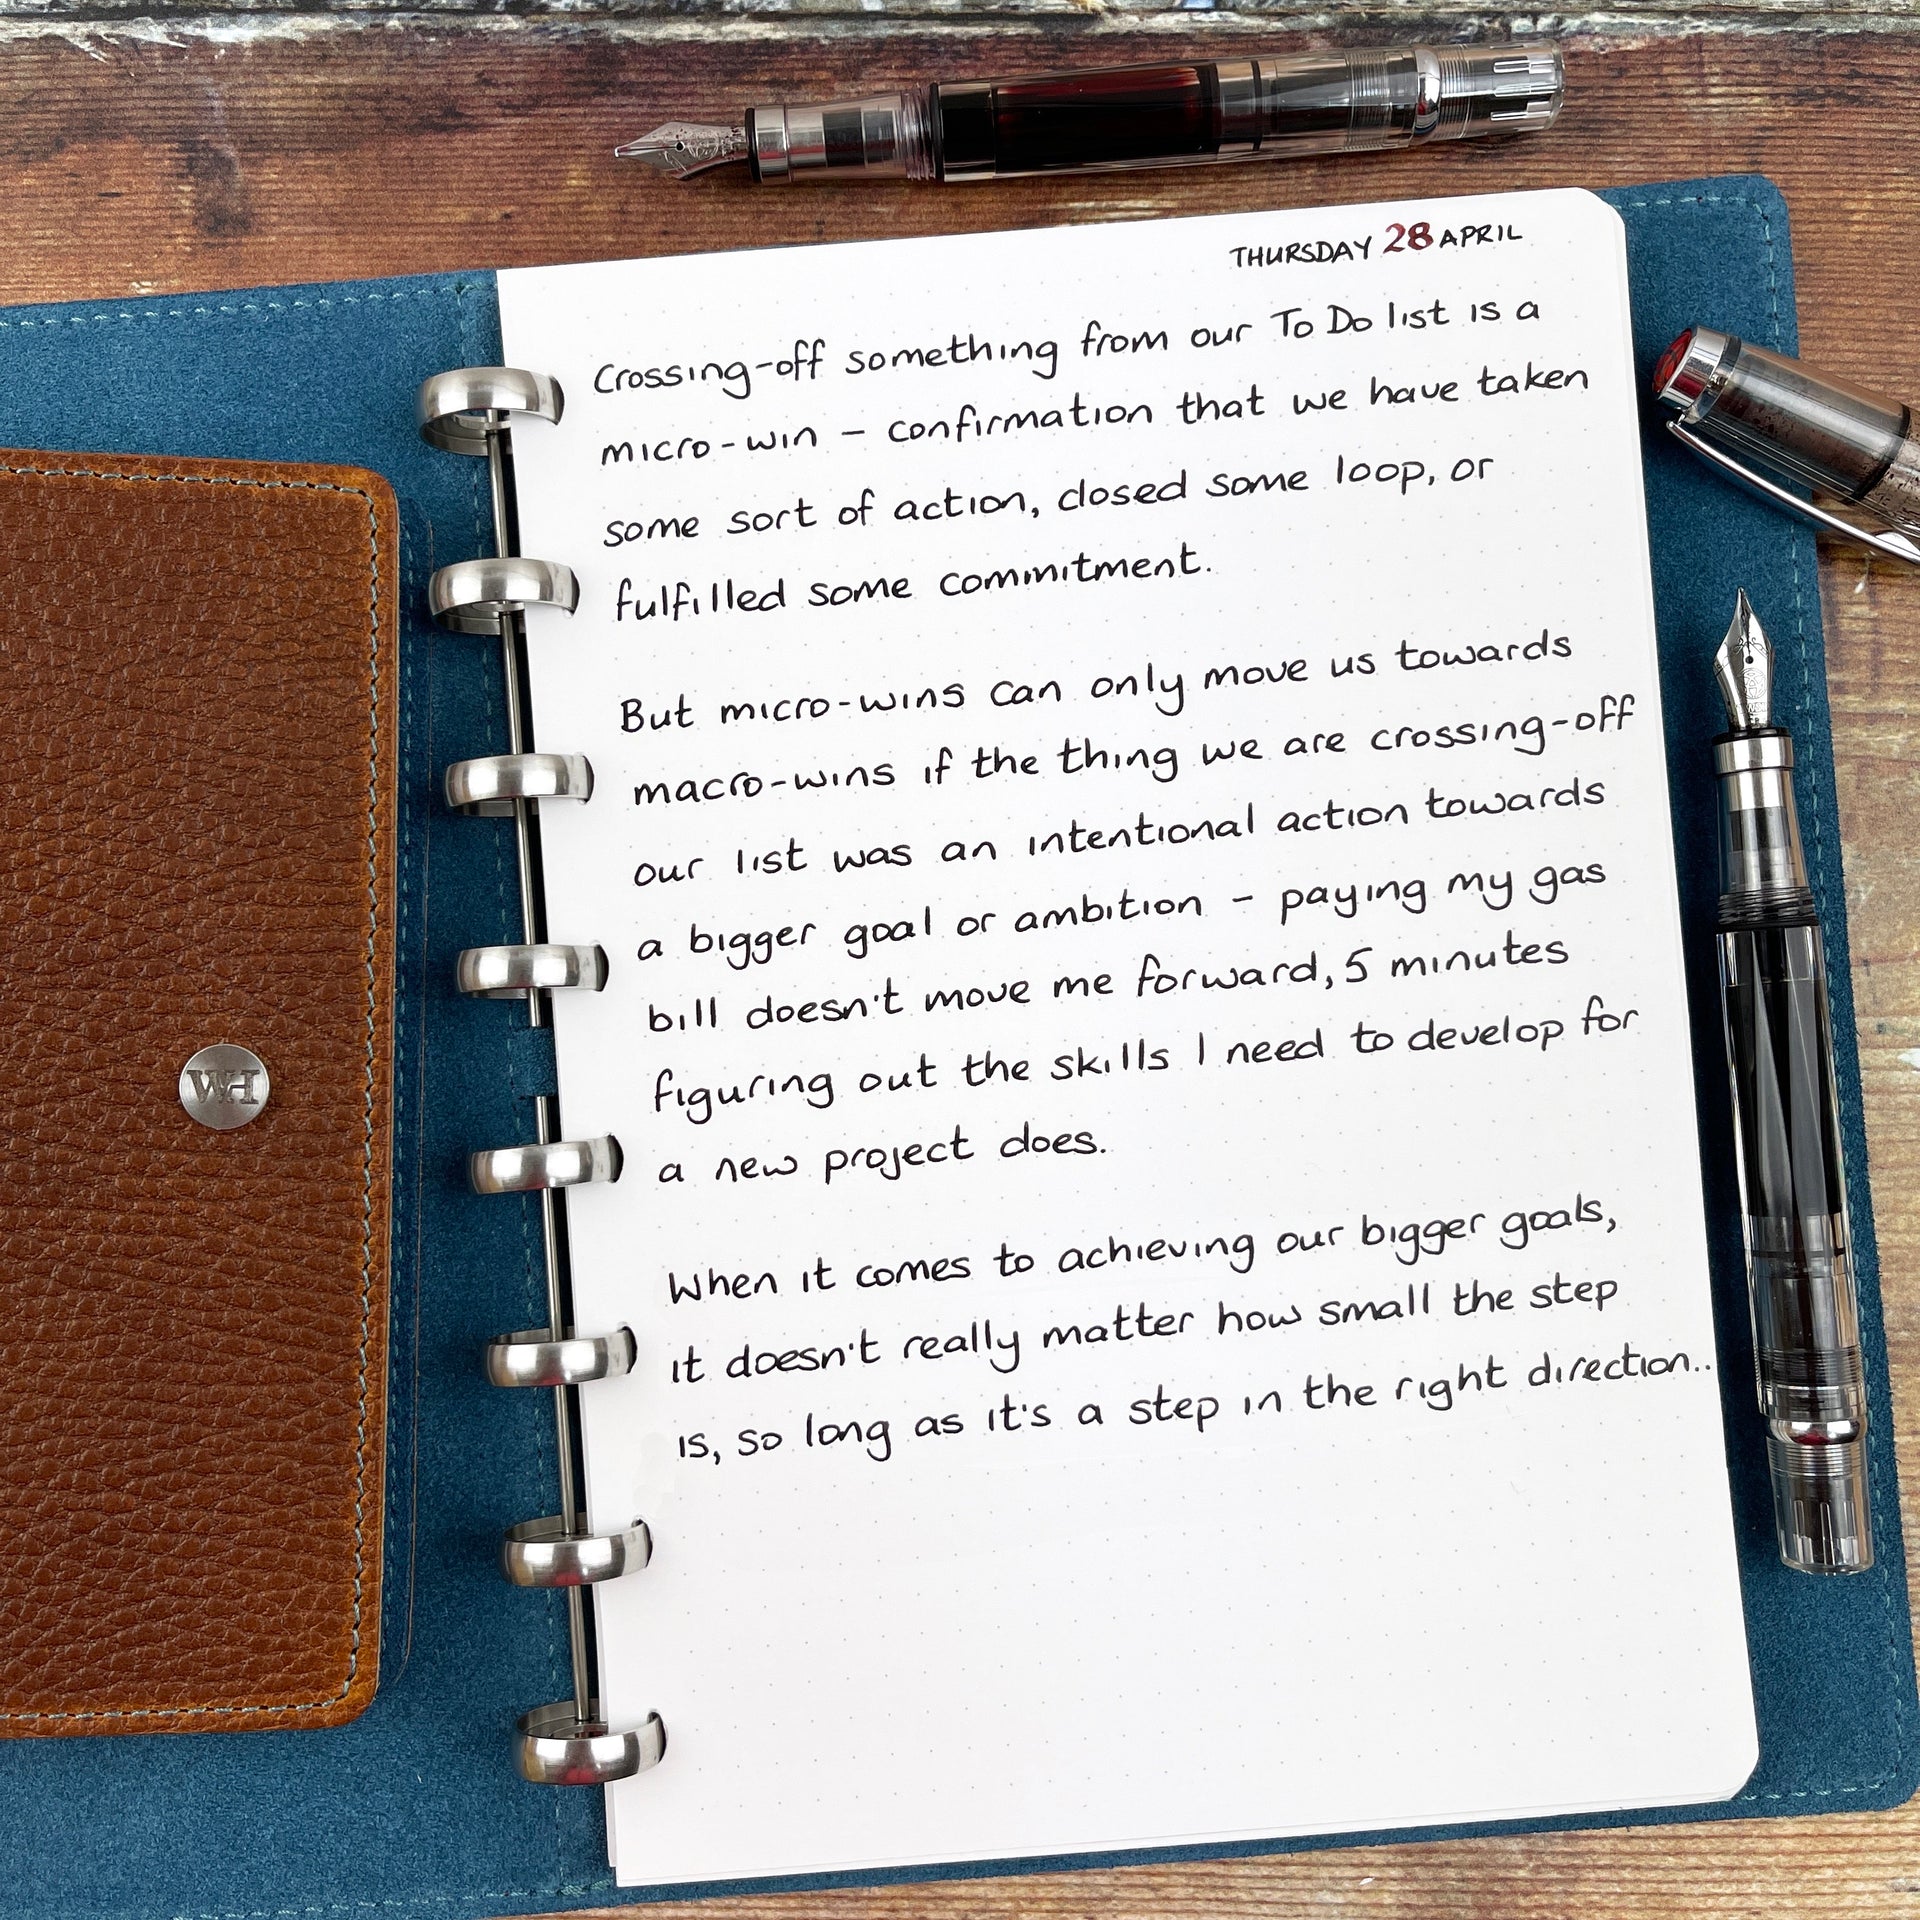 THURSDAY 28 APRIL
Crossing-off something from our To Do list is a
micro-win – confirmation that we have taken
some sort of action, closed some loop, or
fulfilled some commitment.
But micro-wins can only move us towards
macro-wins if the thing we are crossing-off
our list was an intentional action towards
a bigger goal or ambition – paying my gas
bill doesn't move me forward, 5 minutes
figuring out the skills I need to develop for
a new project does.
When it comes to achieving our bigger goals,
it doesn't really matter how small the step
is, so long as it's a step in the right direction..
WH